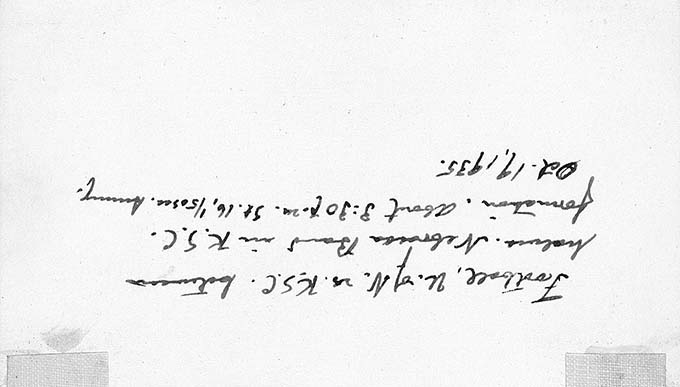 Football, U. of N. vs. K.S.C. between
halves. Nebraska Band in K.S.C.
formation. About 3:30 p.m. St. 16, 1/50 sec. Sunny.
Oct. 19, 1935.